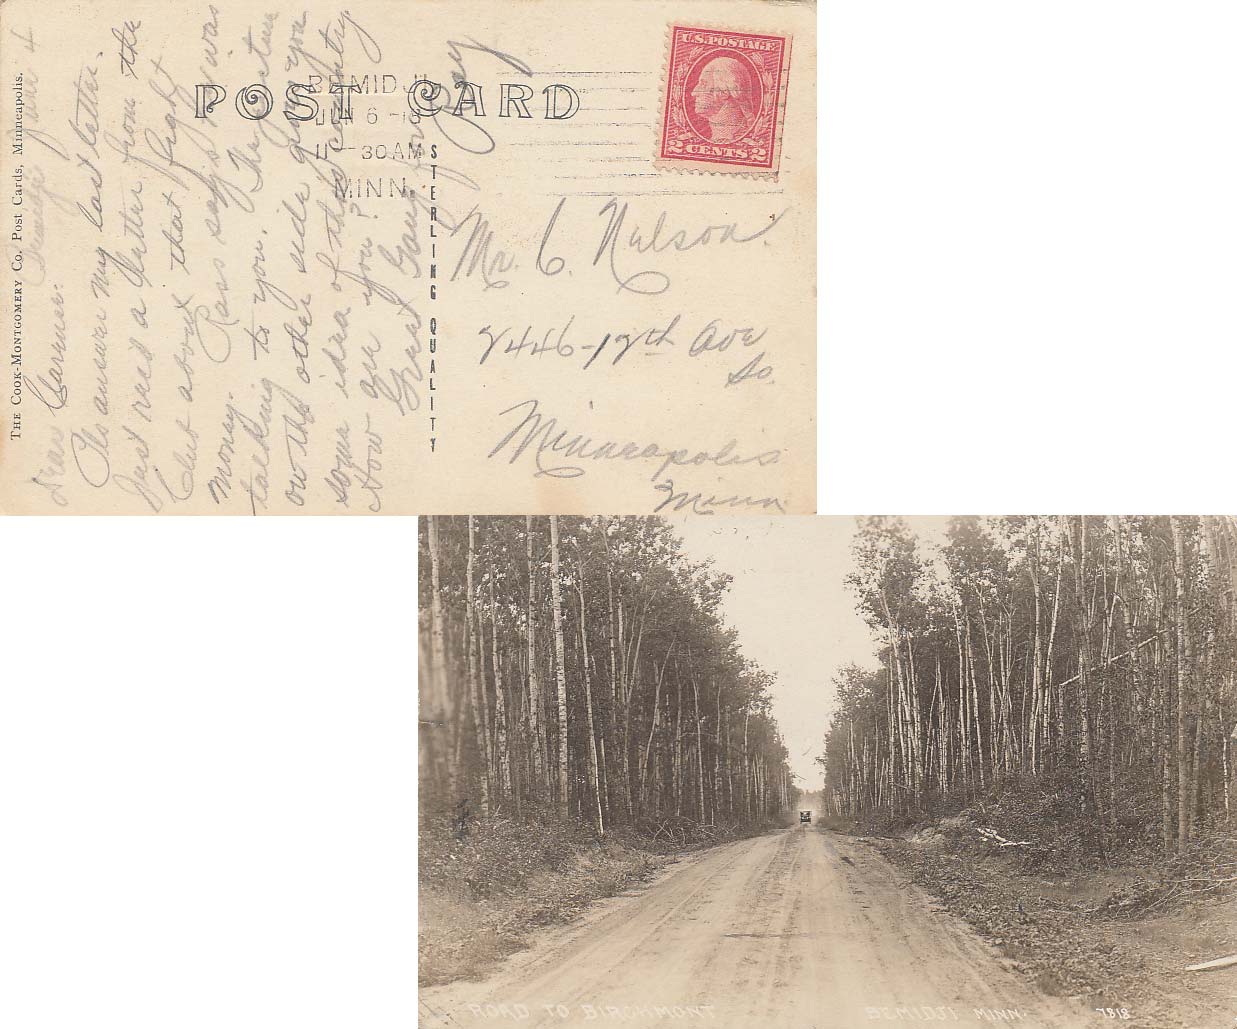 THE COOK-MONTGOMERY CO. Post Cards, Minneapolis.
POST CARD
STERLING QUALITY
U.S. POSTAGE
2 CENTS 2
BEMIDJI
JUN 6 -18
11 30 AM
MINN.
Bemidji June 4
Dear Carrence.
Ils answer my last letter.
Just recd a letter from the
Club about that fight
money. Ross says he was
talking to you. The picture
on the other side gives you
some idea of this country.
How are you?
Great Gang
Ray
Mr. C. Nelson.
2446-12th Ave
So.
Minneapolis
Minn
ROAD TO BIRCHMONT
BEMIDJI MINN.
7818